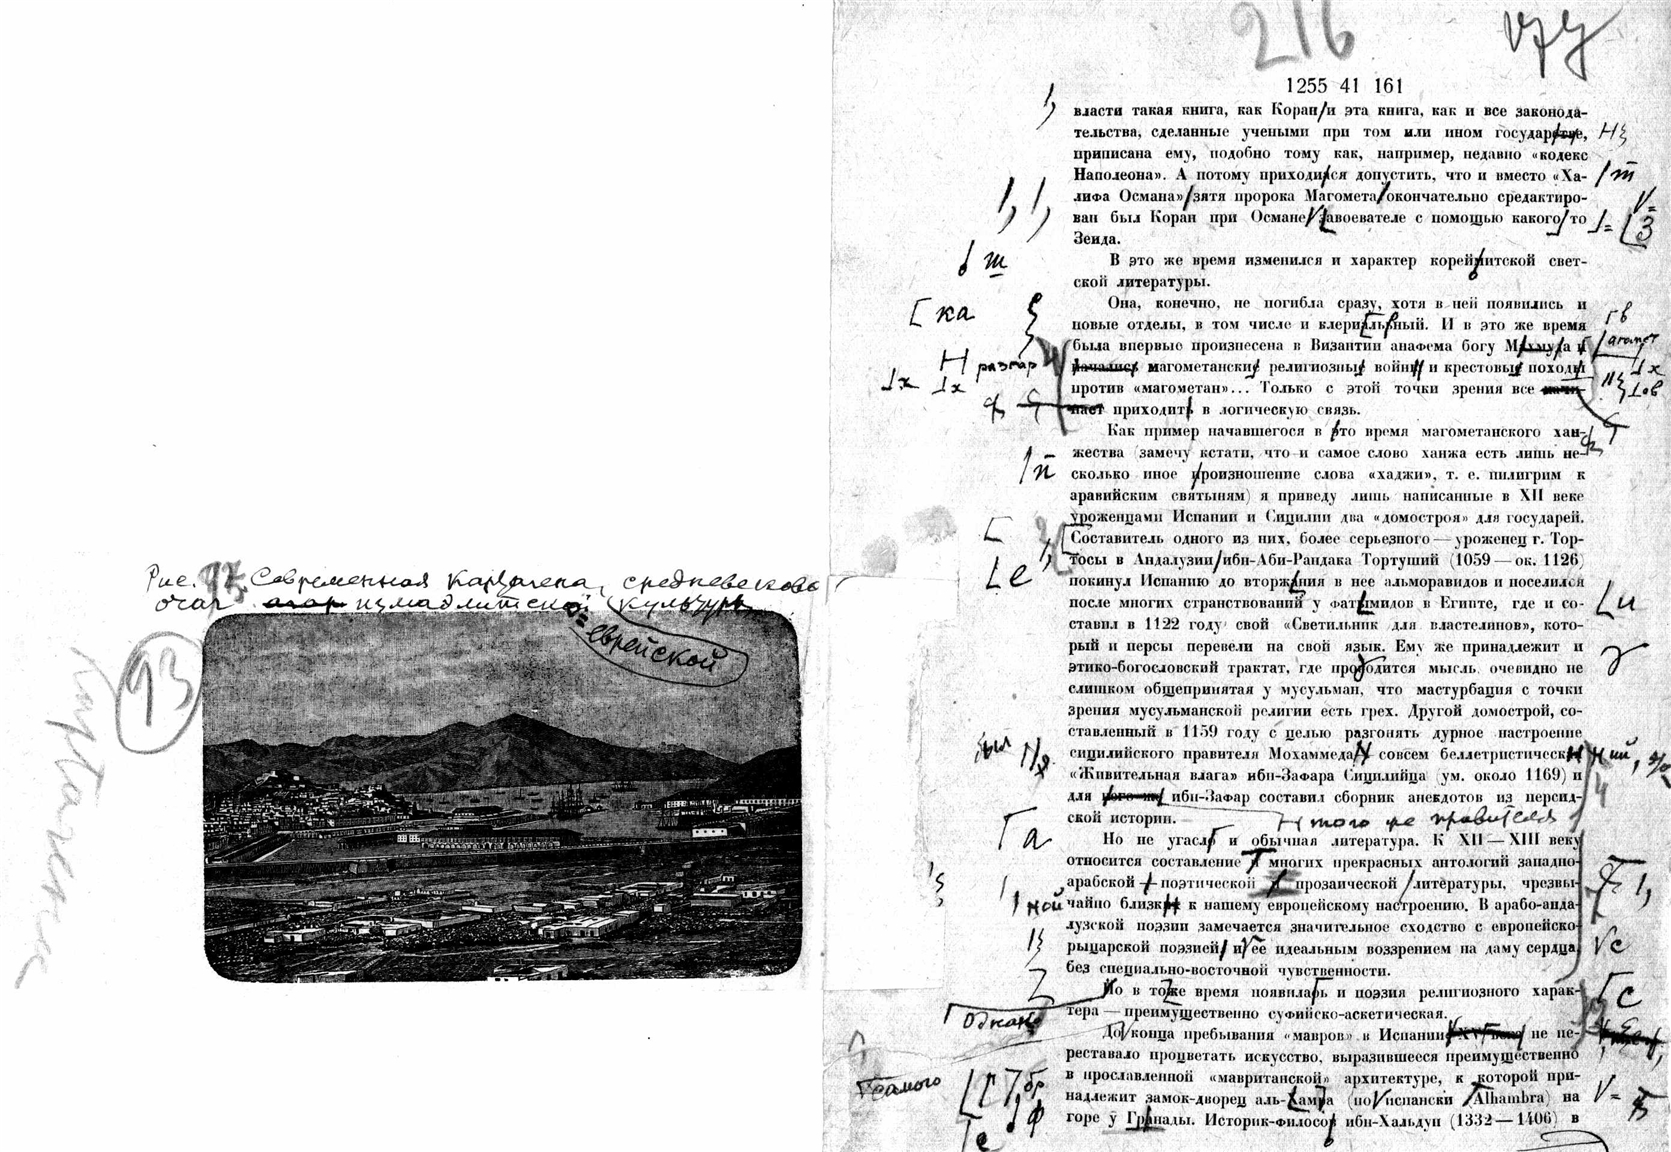 Рис. 97. Современная Картагена, средневековый
очаг измаэлитской культуры
= еврейской
93
Картагена
216
1255 41 161
власти такая книга, как Коран и эта книга, как и все законода-
тельства, сделанные учеными при том или ином государстве,
приписана ему, подобно тому как, например, недавно «кодекс
Наполеона». А потому приходися допустить, что и вместо «Ха-
лифа Османа» зятя пророка Магомета окончательно средактиро-
ван был Коран при Османе Завоевателе с помощью какого то
Зеида.
В это же время изменился и характер корейшитской свет-
ской литературы.
Она, конечно, не погибла сразу, хотя в ней появились и
новые отделы, в том числе и клериальный. И в это же время
была впервые произнесена в Византии анафема богу Махмуда и
начались магометанские религиозные войны и крестовые походы
против «магометан»... Только с этой точки зрения все начи-
нает приходить в логическую связь.
Как пример начавшегося в это время магометанского хан-
жества (замечу кстати, что и самое слово ханжа есть лишь не-
сколько иное произношение слова «хаджи», т. е. пилигрим к
аравийским святыням) я приведу лишь написанные в XII веке
уроженцами Испании и Сицилии два «домостроя» для государей.
Составитель одного из них, более серьезного — уроженец г. Тор-
тосы в Андалузии ибн-Аби-Рандака Тортуший (1059 — ок. 1126)
покинул Испанию до вторжения в нее альморавидов и поселился
после многих странствований у фатимидов в Египте, где и со-
ставил в 1122 году свой «Светильник для властелинов», кото-
рый и персы перевели на свой язык. Ему же принадлежит и
этико-богословский трактат, где проводится мысль, очевидно не
слишком общепринятая у мусульман, что мастурбация с точки
зрения мусульманской религии есть грех. Другой домострой, со-
ставленный в 1159 году с целью разгонять дурное настроение
сицилийского правителя Мохаммеда, совсем беллетристически
«Живительная влага» ибн-Зафара Сицилийца (ум. около 1169) и
для него же ибн-Зафар составил сборник анекдотов из персид-
ской истории. того же правителя
Но не угасла и обычная литература. К XII—XIII веку
относится составление многих прекрасных антологий западно-
арабской поэтической прозаической литературы, чрезвы-
чайно близки к нашему европейскому настроению. В арабо-анда-
лузской поэзии замечается значительное сходство с европейско-
рыцарской поэзией и ее идеальным воззрением на даму сердца
без специально-восточной чувственности.
Но в тоже время появилась и поэзия религиозного харак-
тера — преимущественно суфийско-аскетическая.
Однако
До конца пребывания «мавров» в Испании не пе-
реставало процветать искусство, выразившееся преимущественно
самого
в прославленной «мавританской» архитектуре, к которой при-
надлежит замок-дворец аль-Хамра (по испански Alhambra) на
горе у Гранады. Историк-философ ибн-Хальдун (1332—1406) в